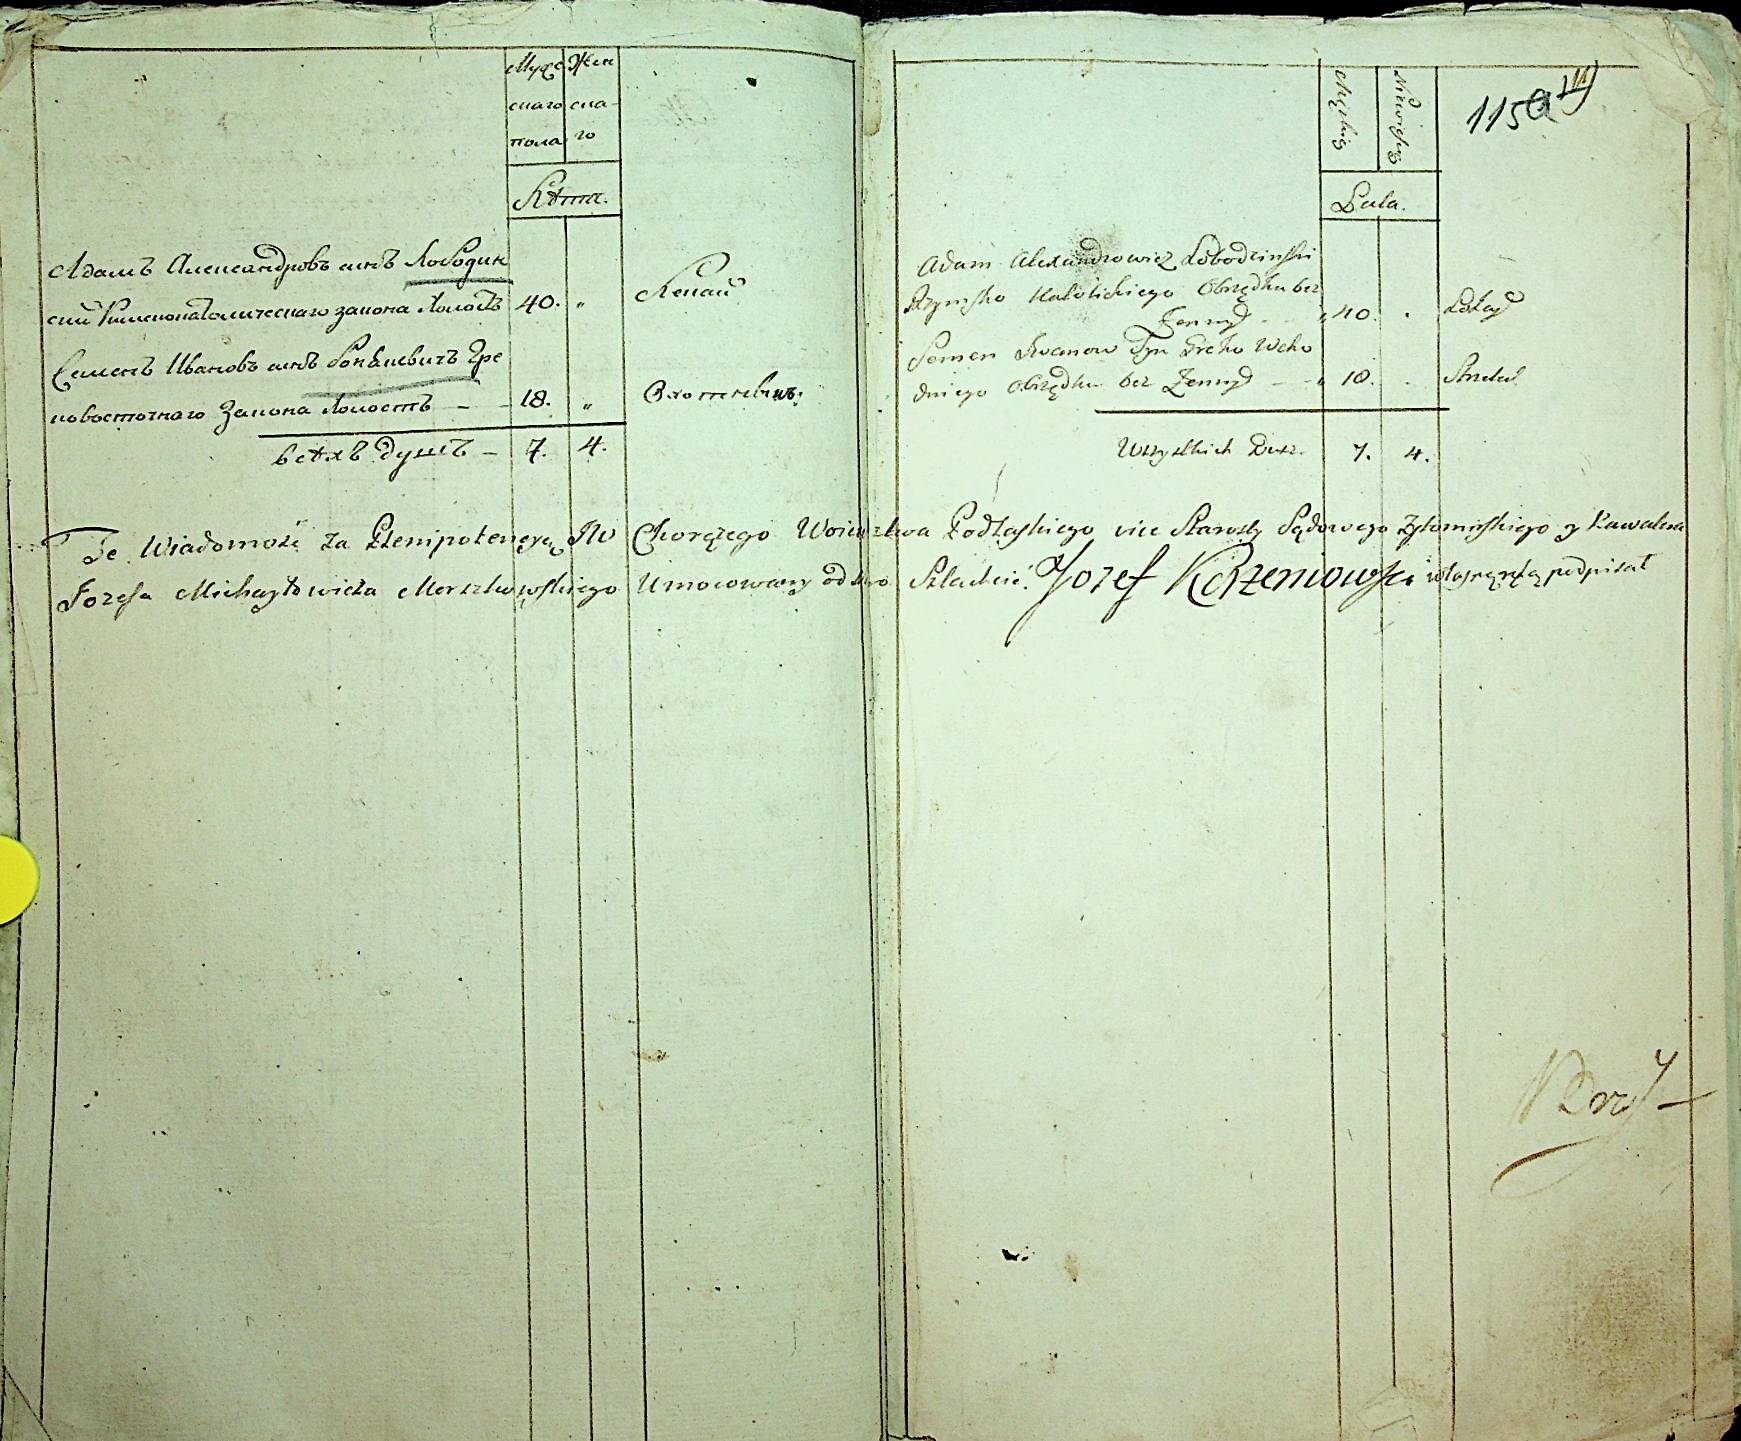 Мужескаго пола
Женскаго
Лѣта.
Адамъ Александровъ синъ Лободин
ский Римскокатолическаго закона холостъ 40. „ Лекай
Семенъ Ивановъ синъ Гре
ковосточнаго Закона холостъ — 18. „
всѣхъ душъ — 7. 4.
Męskiey
Niewieskiey
115
Lata.
Adam Alexandrowicz Łobodzinski
Rzymsko Katolickiego Obrządku bez
Żenny — „ 40. . Lokay
Semen Iwanow Syn Greko Wcho
dniego Obrządku bez Żenny — „ 18. . Strzelec
Wszystkich Dusz. 7. 4.
Te Wiadomość za Plenipotencyą JW Chorążego Woiewództwa Podlaskiego vice Starosty Sądowego Żytomirskiego y Kawalera
Jozefa Michayłowicza Morzkowskiego Umocowany od Szlachcic Jozef Korzeniowski własną ręką podpisał